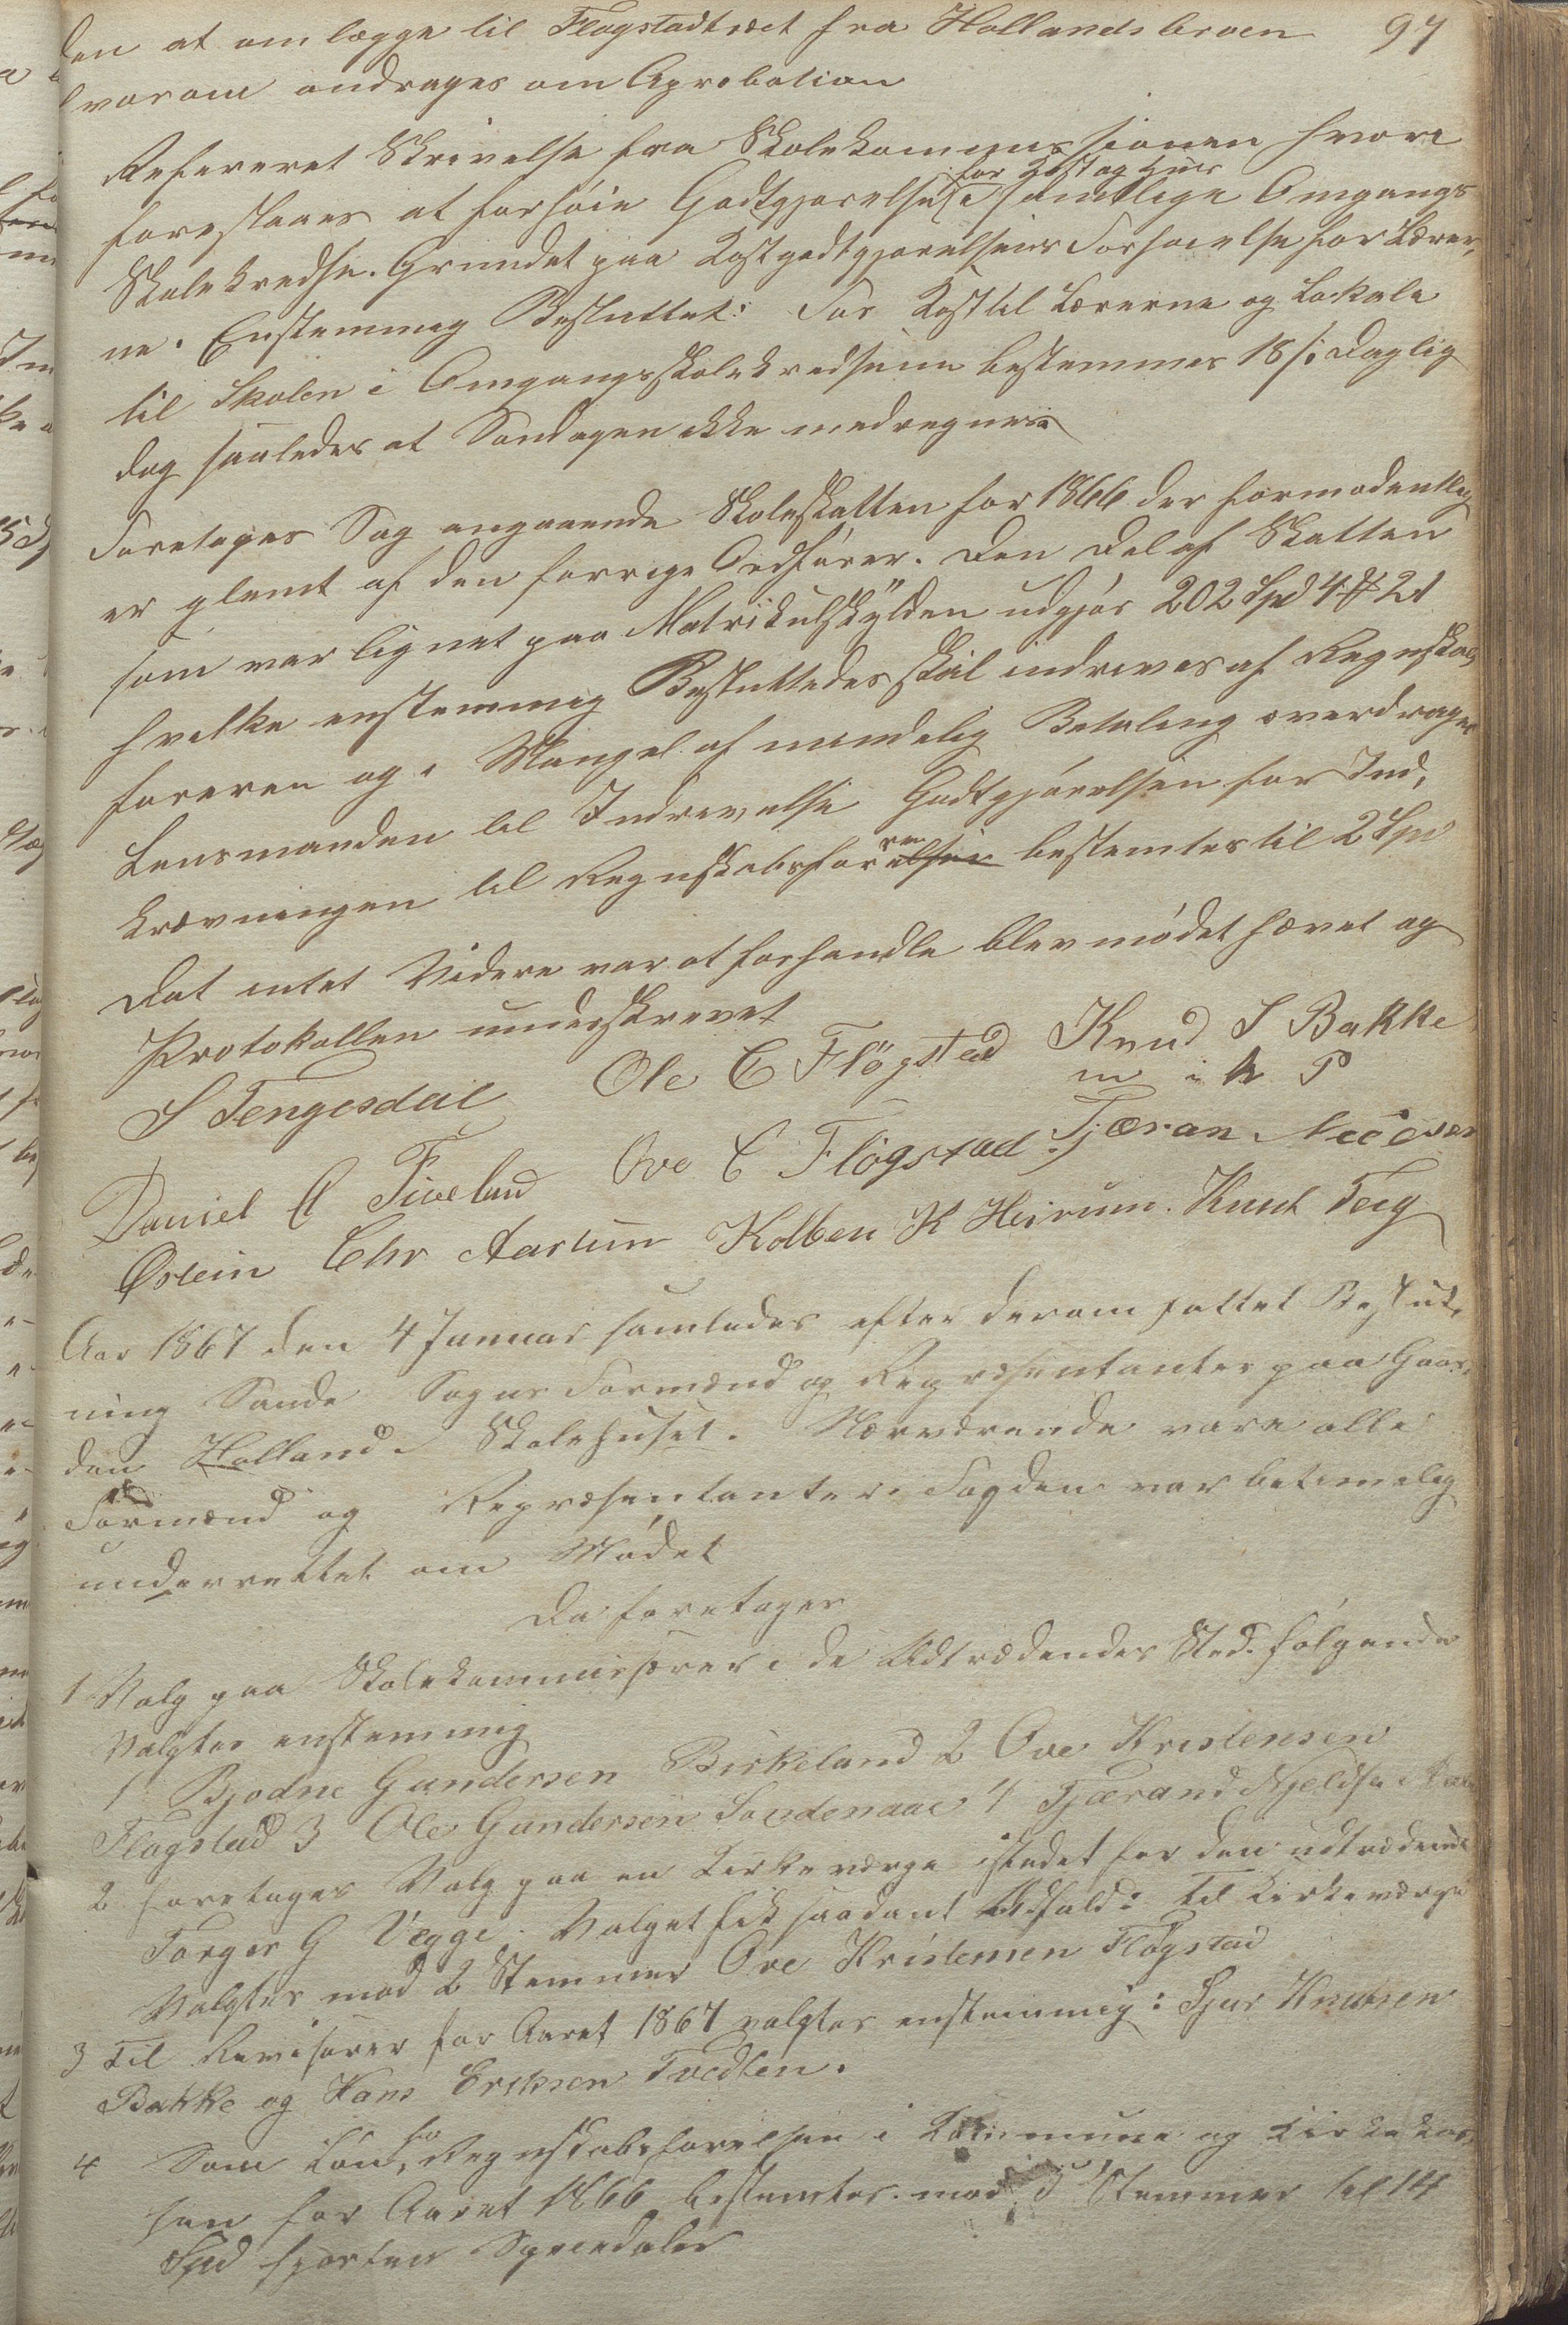 97
den at omlægge til Flagstadtræet fra Hollandsbroen
hvorom andrages om Aprobation
Refereret Skrivelse fra Skolekommissionen hvori
foreslaaes at forhøie Godtgjorelsen for Kost og Huus i samtlige Omgangs
Skolekredse. Grundet paa Kostgodtgjorelsens Forhoielse for Lærer,
ne. Enstemmig Besluttet: For Kost til Lærerne og Lokale
til Skolen i Omgangsskolekredsene bestemmes 18 s daglig
dog saaledes at Søndagen ikke medregnes
Foretoges Sag angaaende Skoleskatten for 1866 der formodentlig
er glemt af den forrige Ordfører. Den Del af Skatten
som var lignet paa Matrikulskylden udgjør 202 Spd 4 # 21
hvilke enstemmig Besluttedes skal indrives af Regnskabs
foreren og i Mangel af mindelig Betaling overdrages
Lensmanden til Indrivelse Godtgjørelsen for Ind,
krævningen til Regnskabsføreren bestemtes til 2 Spd
Dat intet Videre var at forhandle blev mødet hævet og
Protokollen underskrevet
S Tengesdal Ole C Fløgstad Knud S Bakke
m i h P
Daniel O Fiveland Ove C Fløgstad Tjæran
Østein Chr Aartun Kolben K Heirum. Knud Teig
Aar 1867 den 4 Januar samledes efter derom fattet Beslut,
ning Sande Sogns Formænd og Repræsentanter paa Gaar,
den Holland i Skolehuset. Nærværende vare alle
Formænd og Repræsentanter. Fogden var betimelig
underrettet om Mødet
Da foretoges
1 Valg paa Skolekommisærer i de Udtrædendes Sted. følgende
Valgtes enstemmig
1 Bjodne Gundersen Birkeland 2 Ove Kristensen
Flogstad 3 Ole Gundersen Saudenaae 4 Tjærand Njeldsen
2 foretoges Valg paa en Kirkeværge istedet for den udtrædende
Torger G Vegge. Valget fik saadant Udfald: Til Kirkeværge
Valgtes med 2 Stemmer Ove Kristensen Fløgstad
3 Til Revisorer for Aaret 1867 valgtes enstemmig: Sjur Knutsen
Bakke og Hans Eriksen Tvedten.
4 Som Løn for Regnskabsførelsen i Kommune og Kirkekas,
sen for Aaret 1866 bestemtes med 5 Stemmer til 14
Spd fjorten Speciedaler